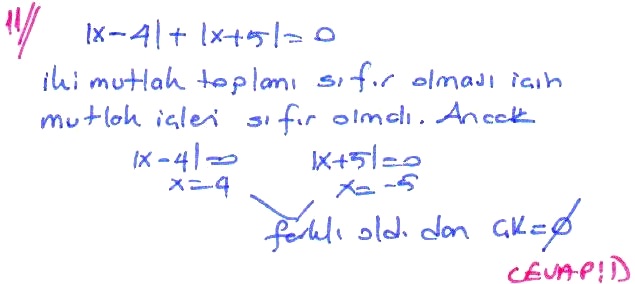 11// |x-4| + |x+5| = 0
iki mutlak toplamı sıfır olması için
mutlak içleri sıfır olmalı. Ancak
|x-4|=0 |x+5|=0
x=4 x=-5
farklı oldı. dan ÇK=∅
CEVAP: D